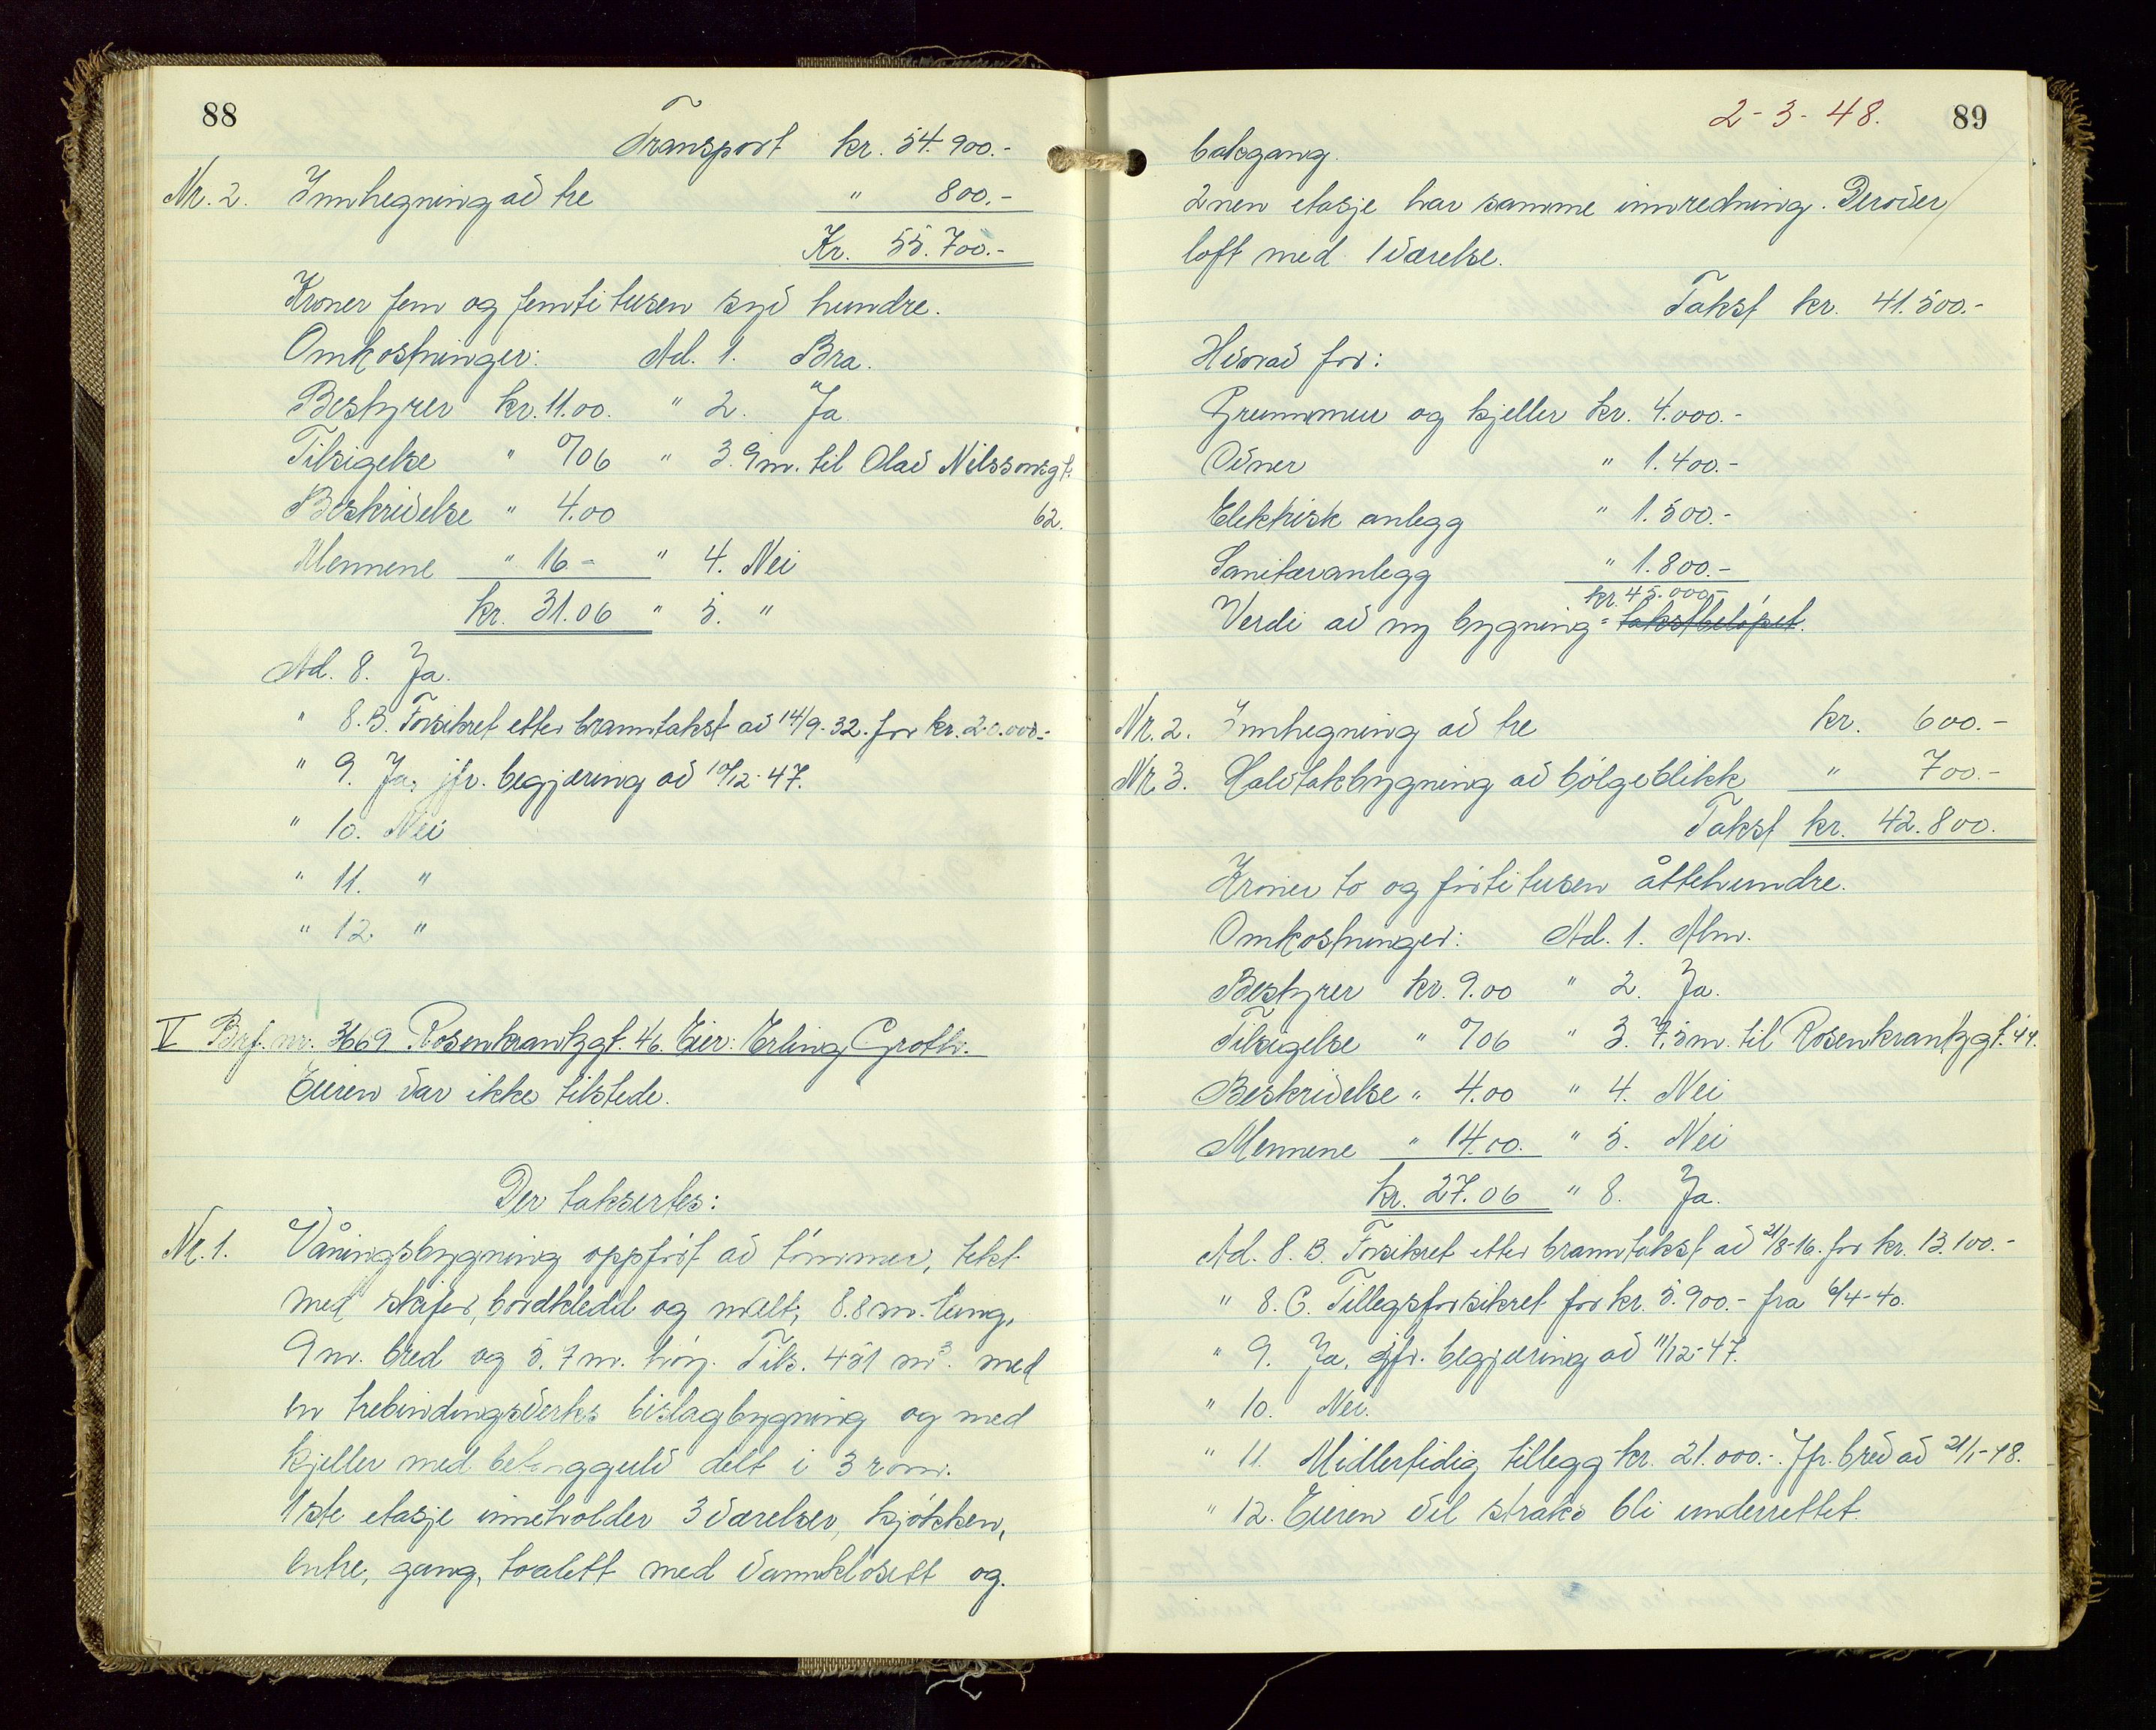 88
Transport kr. 54.900.-
Nr. 2. Innhegning av tre " 800.-
Kr. 55.700.-
Kroner fem og femtitusen syv hundre.
Omkostninger: Ad. 1. Bra.
Bestyrer kr. 11.00. " 2. Ja
Tilsigelse " 0/06 " 3. 9 m. til Olav Nilssonsgt.
62.
Beskrivelse " 4.00
Mennene " 16 - " 4. Nei
kr. 31.06 " 5. "
Ad. 8. Ja.
" 8.B. Forsikret etter branntakst av 14/9-32. for kr. 20.000.-
" 9. Ja, jfr. begjæring av 10/12-47.
" 10. Nei
" 11. "
" 12. "
V Brf. nr. 3669 Rosenkrantzgt. 46. Eier: Erling Groth.
Eieren var ikke tilstede.
Der taksertes:
Nr. 1. Våningsbygning oppført av tømmer, tekt
med skifer, bordkledd og malt, 8.8 m. lang,
9 m. bred og 5.7 m. høy. Tils. 451 m³. med
en trebindingsverks bislagbygning og med
kjeller med betonggulv delt i 3 rom.
1ste etasje inneholder 3 værelser, kjøkken,
entre, gang, toalett med vannklosett og
2-3-48. 89
bakgang.
2nen etasje har samme innredning. Derover
loft med 1 værelse.
Takst kr. 41.500.-
Hvorav for:
Grunnmur og kjeller kr. 4.000.-
Ovner " 1.400.-
Elektrisk anlegg " 1.500.-
Sanitæranlegg " 1.800.-
kr. 45.000.-
Verdi av ny bygning = takstbeløpet.
Nr. 2. Innhegning av tre kr. 600.-
Nr. 3. Halvtakbygning av bølgeblikk " 700.-
Takst kr. 42.800.
Kroner to og førtitusen åttehundre.
Omkostninger: Ad. 1. Alm.
Bestyrer kr. 9.00 " 2. Ja.
Tilsigelse " 0/06 " 3. 7,5 m. til Rosenkrantzgt. 44.
Beskrivelse " 4.00 " 4. Nei
Mennene " 14.00. " 5. Nei
kr. 27.06 " 8. Ja.
Ad. 8. B. Forsikret etter branntakst av 21/8-16. for kr. 13.100.-
" 8. C. Tillegsforsikret for kr. 5.900.- fra 6/4-40.
" 9. Ja, jfr. begjæring av 11/12-47.
" 10. Nei.
" 11. Midlertidig tillegg kr. 21.000.-. Jfr. brev av 21/1-48.
" 12. Eieren vil straks bli underrettet.